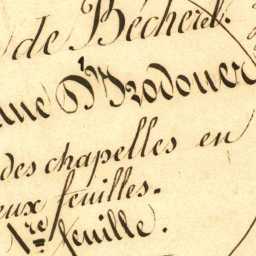 de Bécherel.
une d'Irodouer
des chapelles en
eux feuilles.
1re feuille.